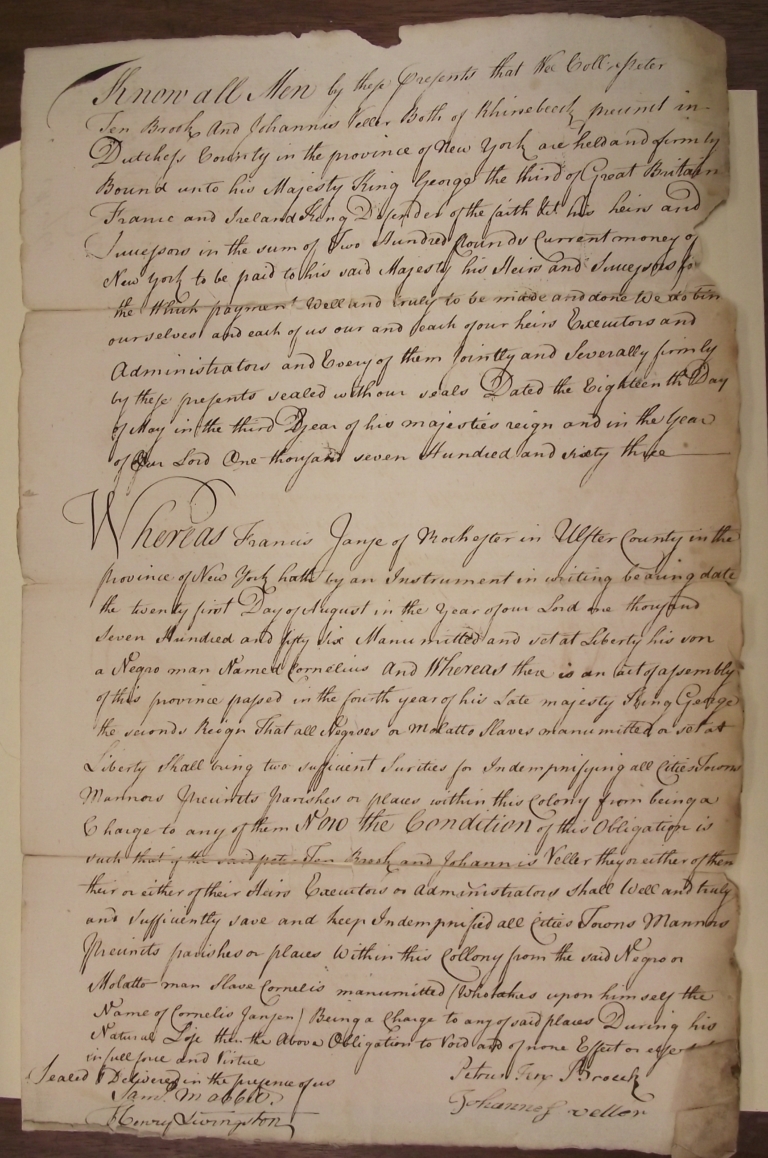 Know all Men by these Presents that We Coll. Peter
Ten Brook And Johannis Veller Both of Rhinebeck precinct in
Dutchess County in the province of New York are held and firmly
Bound unto his Majesty King George the third of Great Britain
France and Ireland King Defender of the faith &c his heirs and
Successors in the sum of Two Hundred Pounds Current money of
New York to be paid to his said Majesty his Heirs and Successors fo
the Which payment Well and truly to be made and done We do bin
ourselves and each of us our and each of our heirs Executors and
Administrators and Every of them Jointly and Severally firmly
by these presents sealed with our seals Dated the Eighteenth Day
of May in the third Year of his majesties reign and in the Year
of Our Lord One thousand seven Hundred and sixty three
Whereas Francis Janse of Rochester in Ulster County in the
province of New York hath by an Instrument in writing bearing date
the twenty first Day of August in the Year of our Lord one thousand
Seven Hundred and fifty six Manumitted and set at Liberty his son
a Negro man Named Cornelius And Whereas there is an act of assembly
of this province passed in the fourth year of his Late majesty King George
the seconds Reign That all Negroes or Molatto Slaves manumitted or set at
Liberty Shall bring two sufficient Surities for Indempnifying all Cities Towns
Mannors Precincts parishes or places within this Colony from being a
Charge to any of them Now the Condition of this Obligation is
such that if the said peter Ten Brook and Johannis Veller they or either of them
their or either of their Heirs Executors or Administrators shall Well and truly
and sufficiently save and keep Indempnified all Cities Towns Mannors
Precincts parishes or places Within this Collony from the said Negro or
Molatto man Slave Cornelis manumitted (Who takes upon himself the
Name of Cornelis Jansen) Being a Charge to any of said places During his
Natural Life then the Above Obligation to Void and of none Effect or
in full force and Virtue
Sealed & Delivered in the presence of us
Petrus Ten Broeck
Saml. Mabbit
Johannes Vellor
Henry Livingston